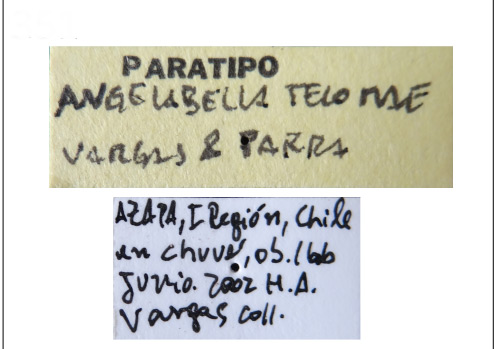 PARATIPO
ANGELABELLA TECOMAE
VARGAS & PARRA
AZAPA, I Región, Chile
en chuve,
Junio. 2002 H.A.
Vargas coll.